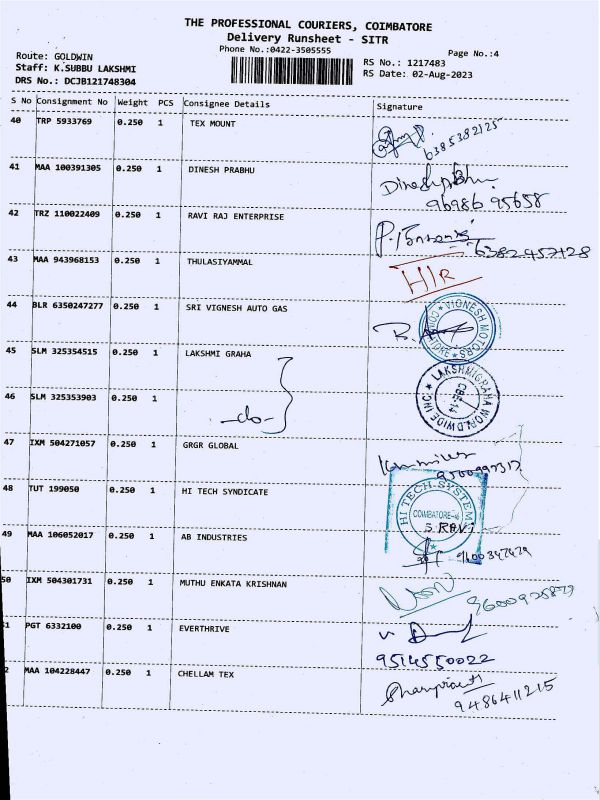 THE PROFESSIONAL COURIERS, COIMBATORE
Delivery Runsheet - SITR
Phone No.:0422-3505555
Page No.:4
Route: GOLDWIN
Staff: K.SUBBU LAKSHMI
DRS No.: DCJB121748304
RS No.: 1217483
RS Date: 02-Aug-2023
S No Consignment No Weight PCS Consignee Details Signature
40 TRP 5933769 0.250 1 TEX MOUNT
6385382125
41 MAA 100391305 0.250 1 DINESH PRABHU
Dinesh prabhu
96986 95658
42 TRZ 110022409 0.250 1 RAVI RAJ ENTERPRISE
6382957128
43 MAA 943968153 0.250 1 THULASIYAMMAL
H/R
44 BLR 6350247277 0.250 1 SRI VIGNESH AUTO GAS
VIGNESH MOTORS
COIMBATORE
45 SLM 325354515 0.250 1 LAKSHMI GRAHA
LAKSHMIGRAHA WORLDWIDE INC
CBE-14
46 SLM 325353903 0.250 1
-do-
47 IXM 504271057 0.250 1 GRGR GLOBAL
48 TUT 199050 0.250 1 HI TECH SYNDICATE
HI TECH SYSTEM
COIMBATORE
S RAVI
49 MAA 106052017 0.250 1 AB INDUSTRIES
50 IXM 504301731 0.250 1 MUTHU ENKATA KRISHNAN
1 PGT 6332100 0.250 1 EVERTHRIVE
9514550022
2 MAA 104228447 0.250 1 CHELLAM TEX
9486411215